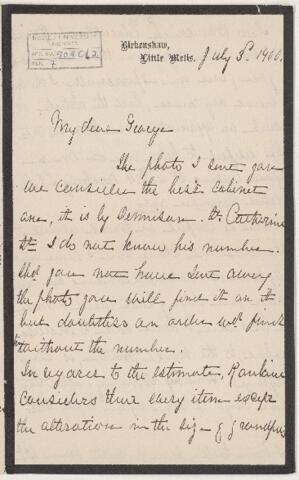 Birkenshaw,
Little Metis.
July 3d. 1900.
My dear George
The photo I sent you
we consider the best cabinet
one, it is by Dennison. St. Catherine
St. I do not know his number.
you not have sent away
the photo you will find it on it
but doubtless an order wd. find
without the number.
In regards to the estimate,
considers that every item except
the alteration in the size of